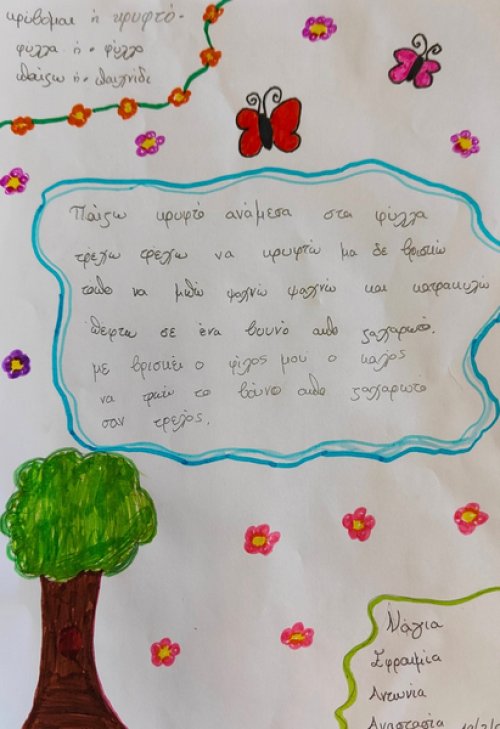 κρύβομαι ή κρυφτό.
φύλλα ή φύλλο
παίζω ή παιχνίδι
Παίζω κρυφτό ανάμεσα στα φύλλα
τρέχω τρέχω να κρυφτώ μα δε βρίσκω
που να μπω ψαχνω ψαχνω και κατρακυλώ
πέφτω σε ένα βουνό απο ζαχαρωτό.
με βρισκει ο φίλος μου ο καλός
να τρωω το βουνο απο ζαχαρωτο
σαν τρελος.
Νάγια
Σφραιμία
Αντωνία
Αναστασία